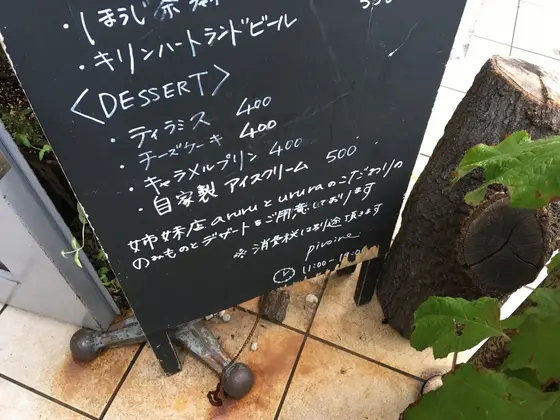 ・ほうじ茶
・キリンハートランドビール
〈DESSERT〉
・ティラミス 400
・チーズケーキ 400
・キャラメルプリン 400
・自家製 アイスクリーム 500
姉妹店 aruru と urura のこだわりの
のみものとデザートをご用意しております
※消費税は別途頂きます
pivoine
11:00-